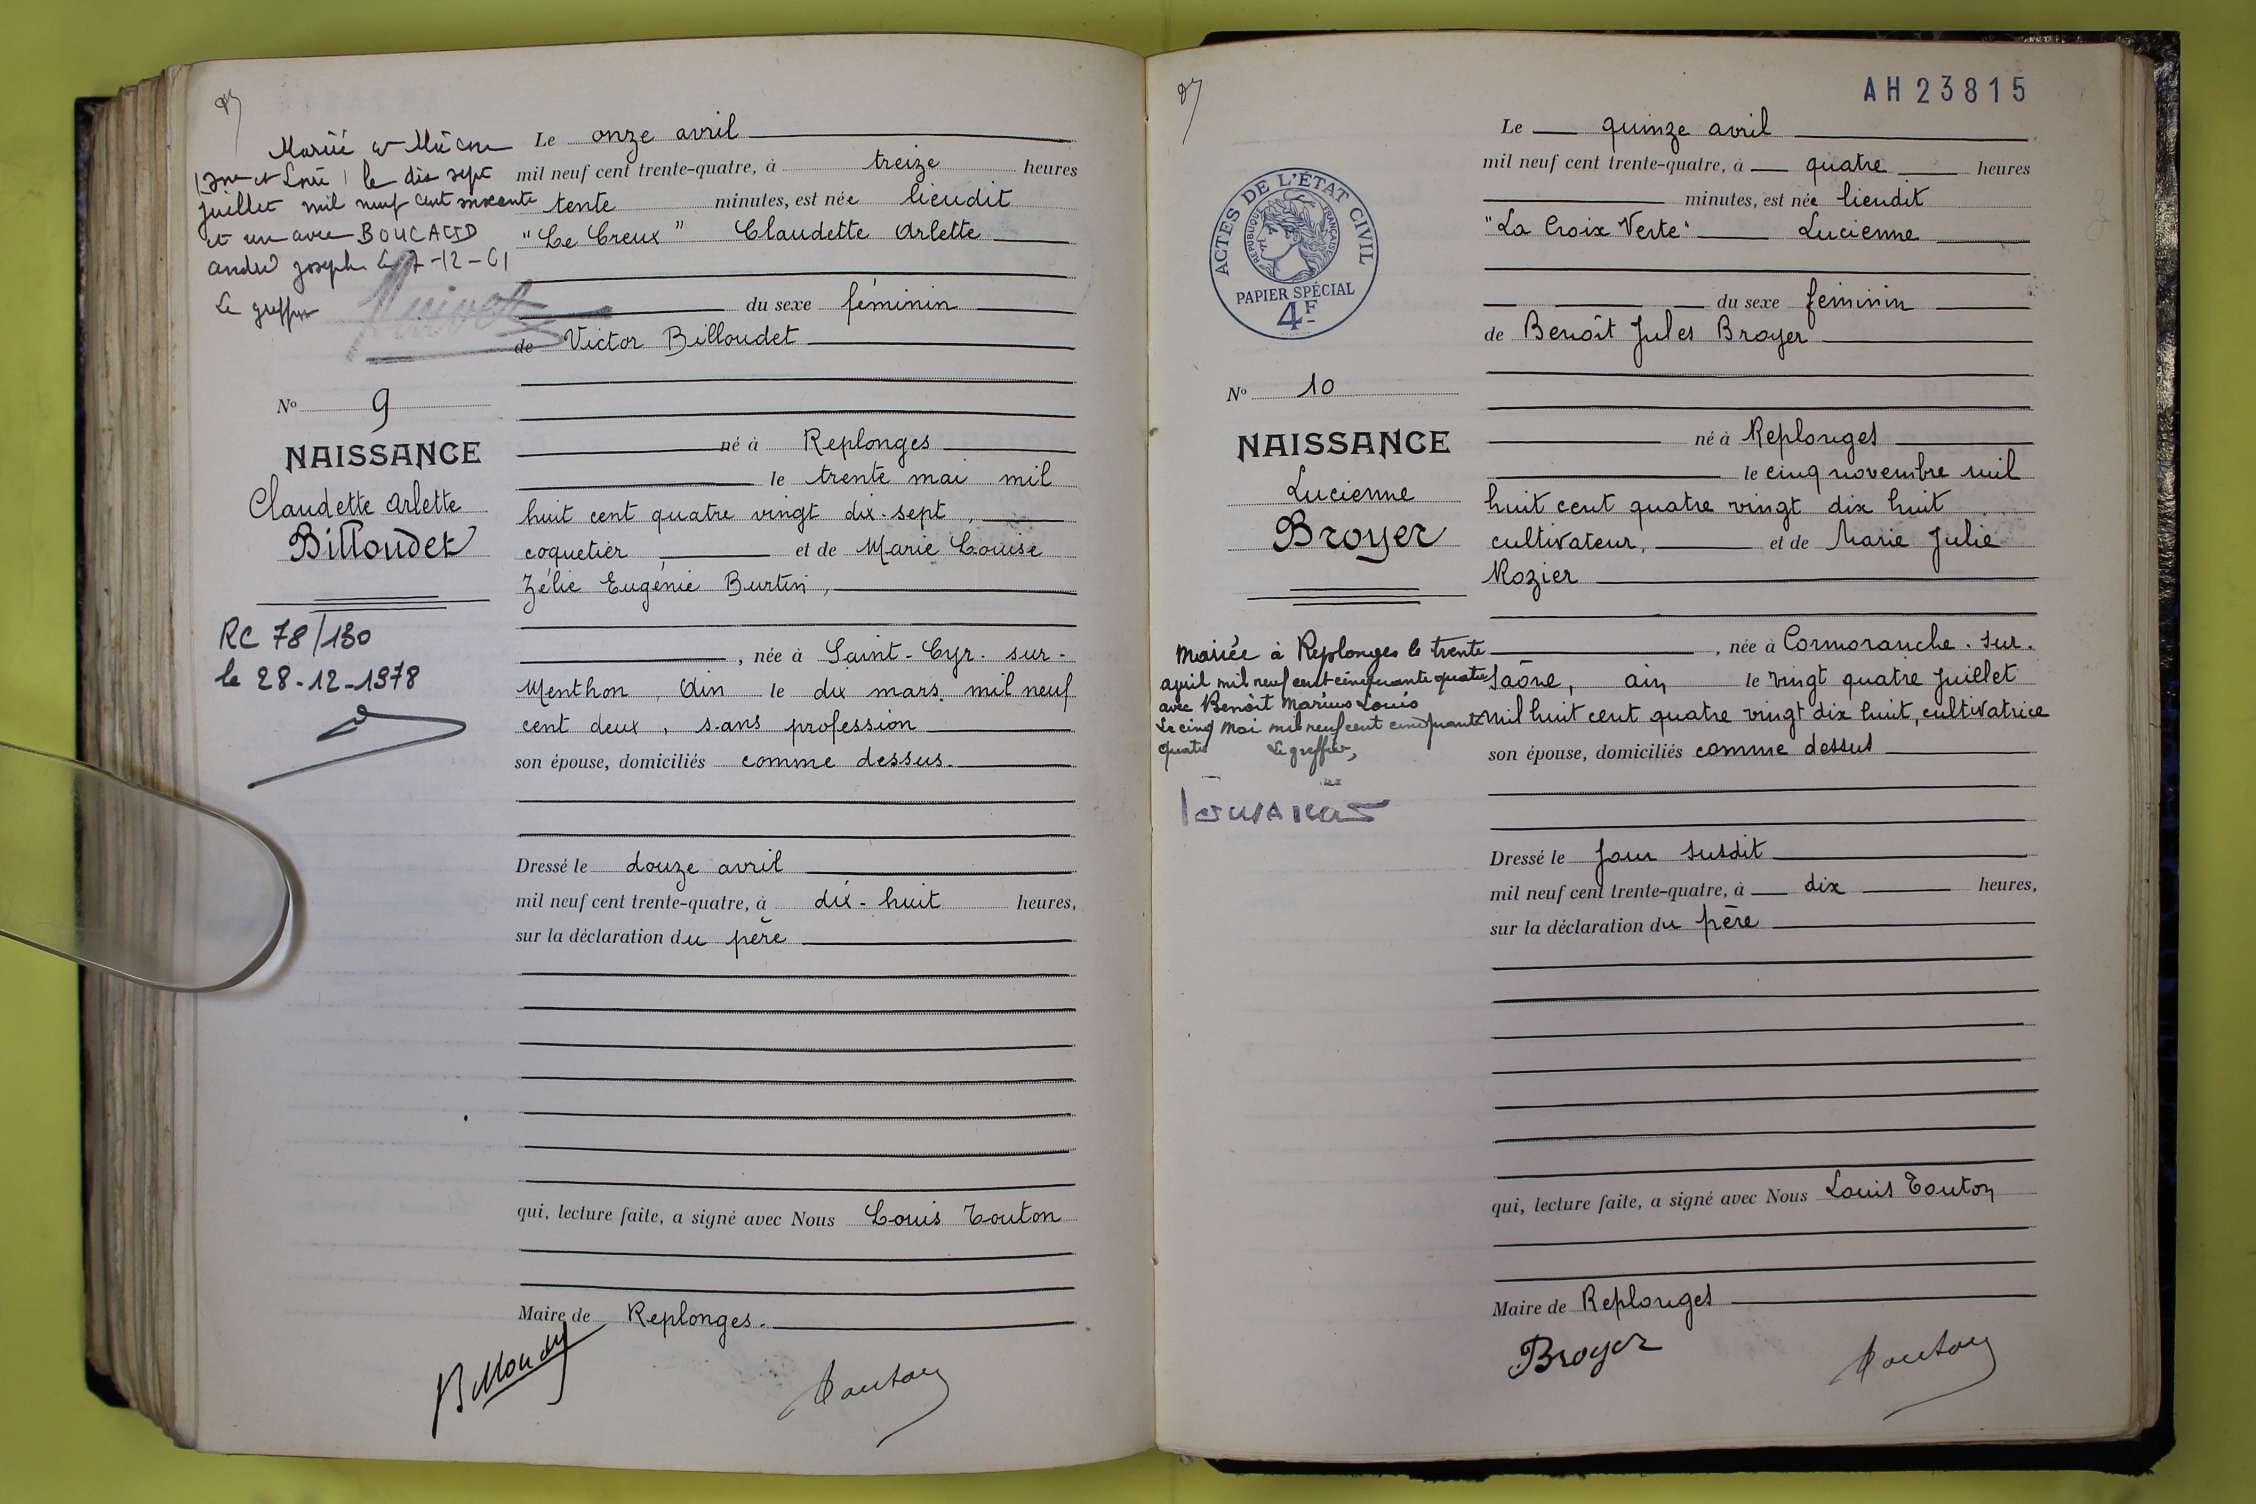 Marié à Mâcon
le dix sept
juillet mil neuf cent soixante
et un avec BOUCAUD
andré joseph le 7-12-61
Le greffier
N° 9
NAISSANCE
Claudette Arlette
Billoudet
RC 78/130
le 28-12-1978
Le onze avril
mil neuf cent trente-quatre, à treize heures
tente minutes, est née lieudit
"Le Creux" Claudette Arlette
du sexe féminin
de Victor Billoudet
né à Replonges
le trente mai mil
huit cent quatre vingt dix-sept,
coquetier, et de Marie Louise
Zélie Eugénie Burtin,
, née à Saint-Cyr-sur-
Menthon, Ain le dix mars mil neuf
cent deux, sans profession
son épouse, domiciliés comme dessus.
Dressé le douze avril
mil neuf cent trente-quatre, à dix-huit heures,
sur la déclaration du père
qui, lecture faite, a signé avec Nous Louis Touton
Maire de Replonges.
Billoudet
Touton
AH23815
ACTES DE L'ÉTAT CIVIL
RÉPUBLIQUE FRANÇAISE
PAPIER SPÉCIAL
4F
N° 10
NAISSANCE
Lucienne
Broyer
Mariée à Replonges le trente
avril mil neuf cent cinquante quatre
avec Benoît Marius Louis
Le cinq Mai mil neuf cent cinquante
quatre Le greffier,
Le quinze avril
mil neuf cent trente-quatre, à quatre heures
minutes, est née lieudit
"La Croix Verte" Lucienne
du sexe féminin
de Benoît Jules Broyer
né à Replonges
le cinq novembre mil
huit cent quatre vingt dix huit
cultivateur, et de Marie Julie
Rozier
, née à Cormoranche-sur-
Saône, ain le vingt quatre juillet
mil huit cent quatre vingt dix huit, cultivatrice
son épouse, domiciliés comme dessus
Dressé le jour susdit
mil neuf cent trente-quatre, à dix heures,
sur la déclaration du père
qui, lecture faite, a signé avec Nous Louis Touton
Maire de Replonges
Broyer
Touton